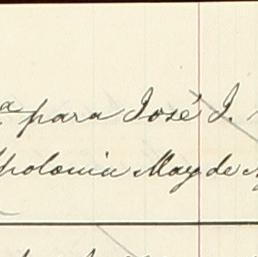 para José J.
polonia May de